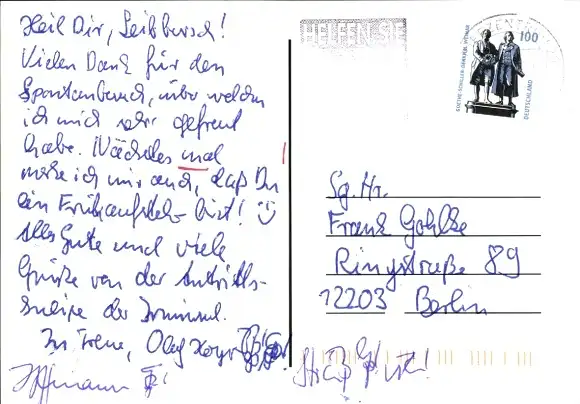 Heil Dir, Leibbursch!
Vielen Dank für den
Spontanbesuch, über welchen
ich mich sehr gefreut
habe. Nächstes mal
merke ich mir auch, daß Du
ein Frühaufsteher bist!
Alles Gute und viele
Grüße von der Antritts-
kneipe der
In Treue, Olaf
HELFEN SIE
100
GOETHE-SCHILLER-DENKMAL WEIMAR
DEUTSCHLAND
Sg. Hr.
Frank Gohlke
Ringstraße 89
12203 Berlin